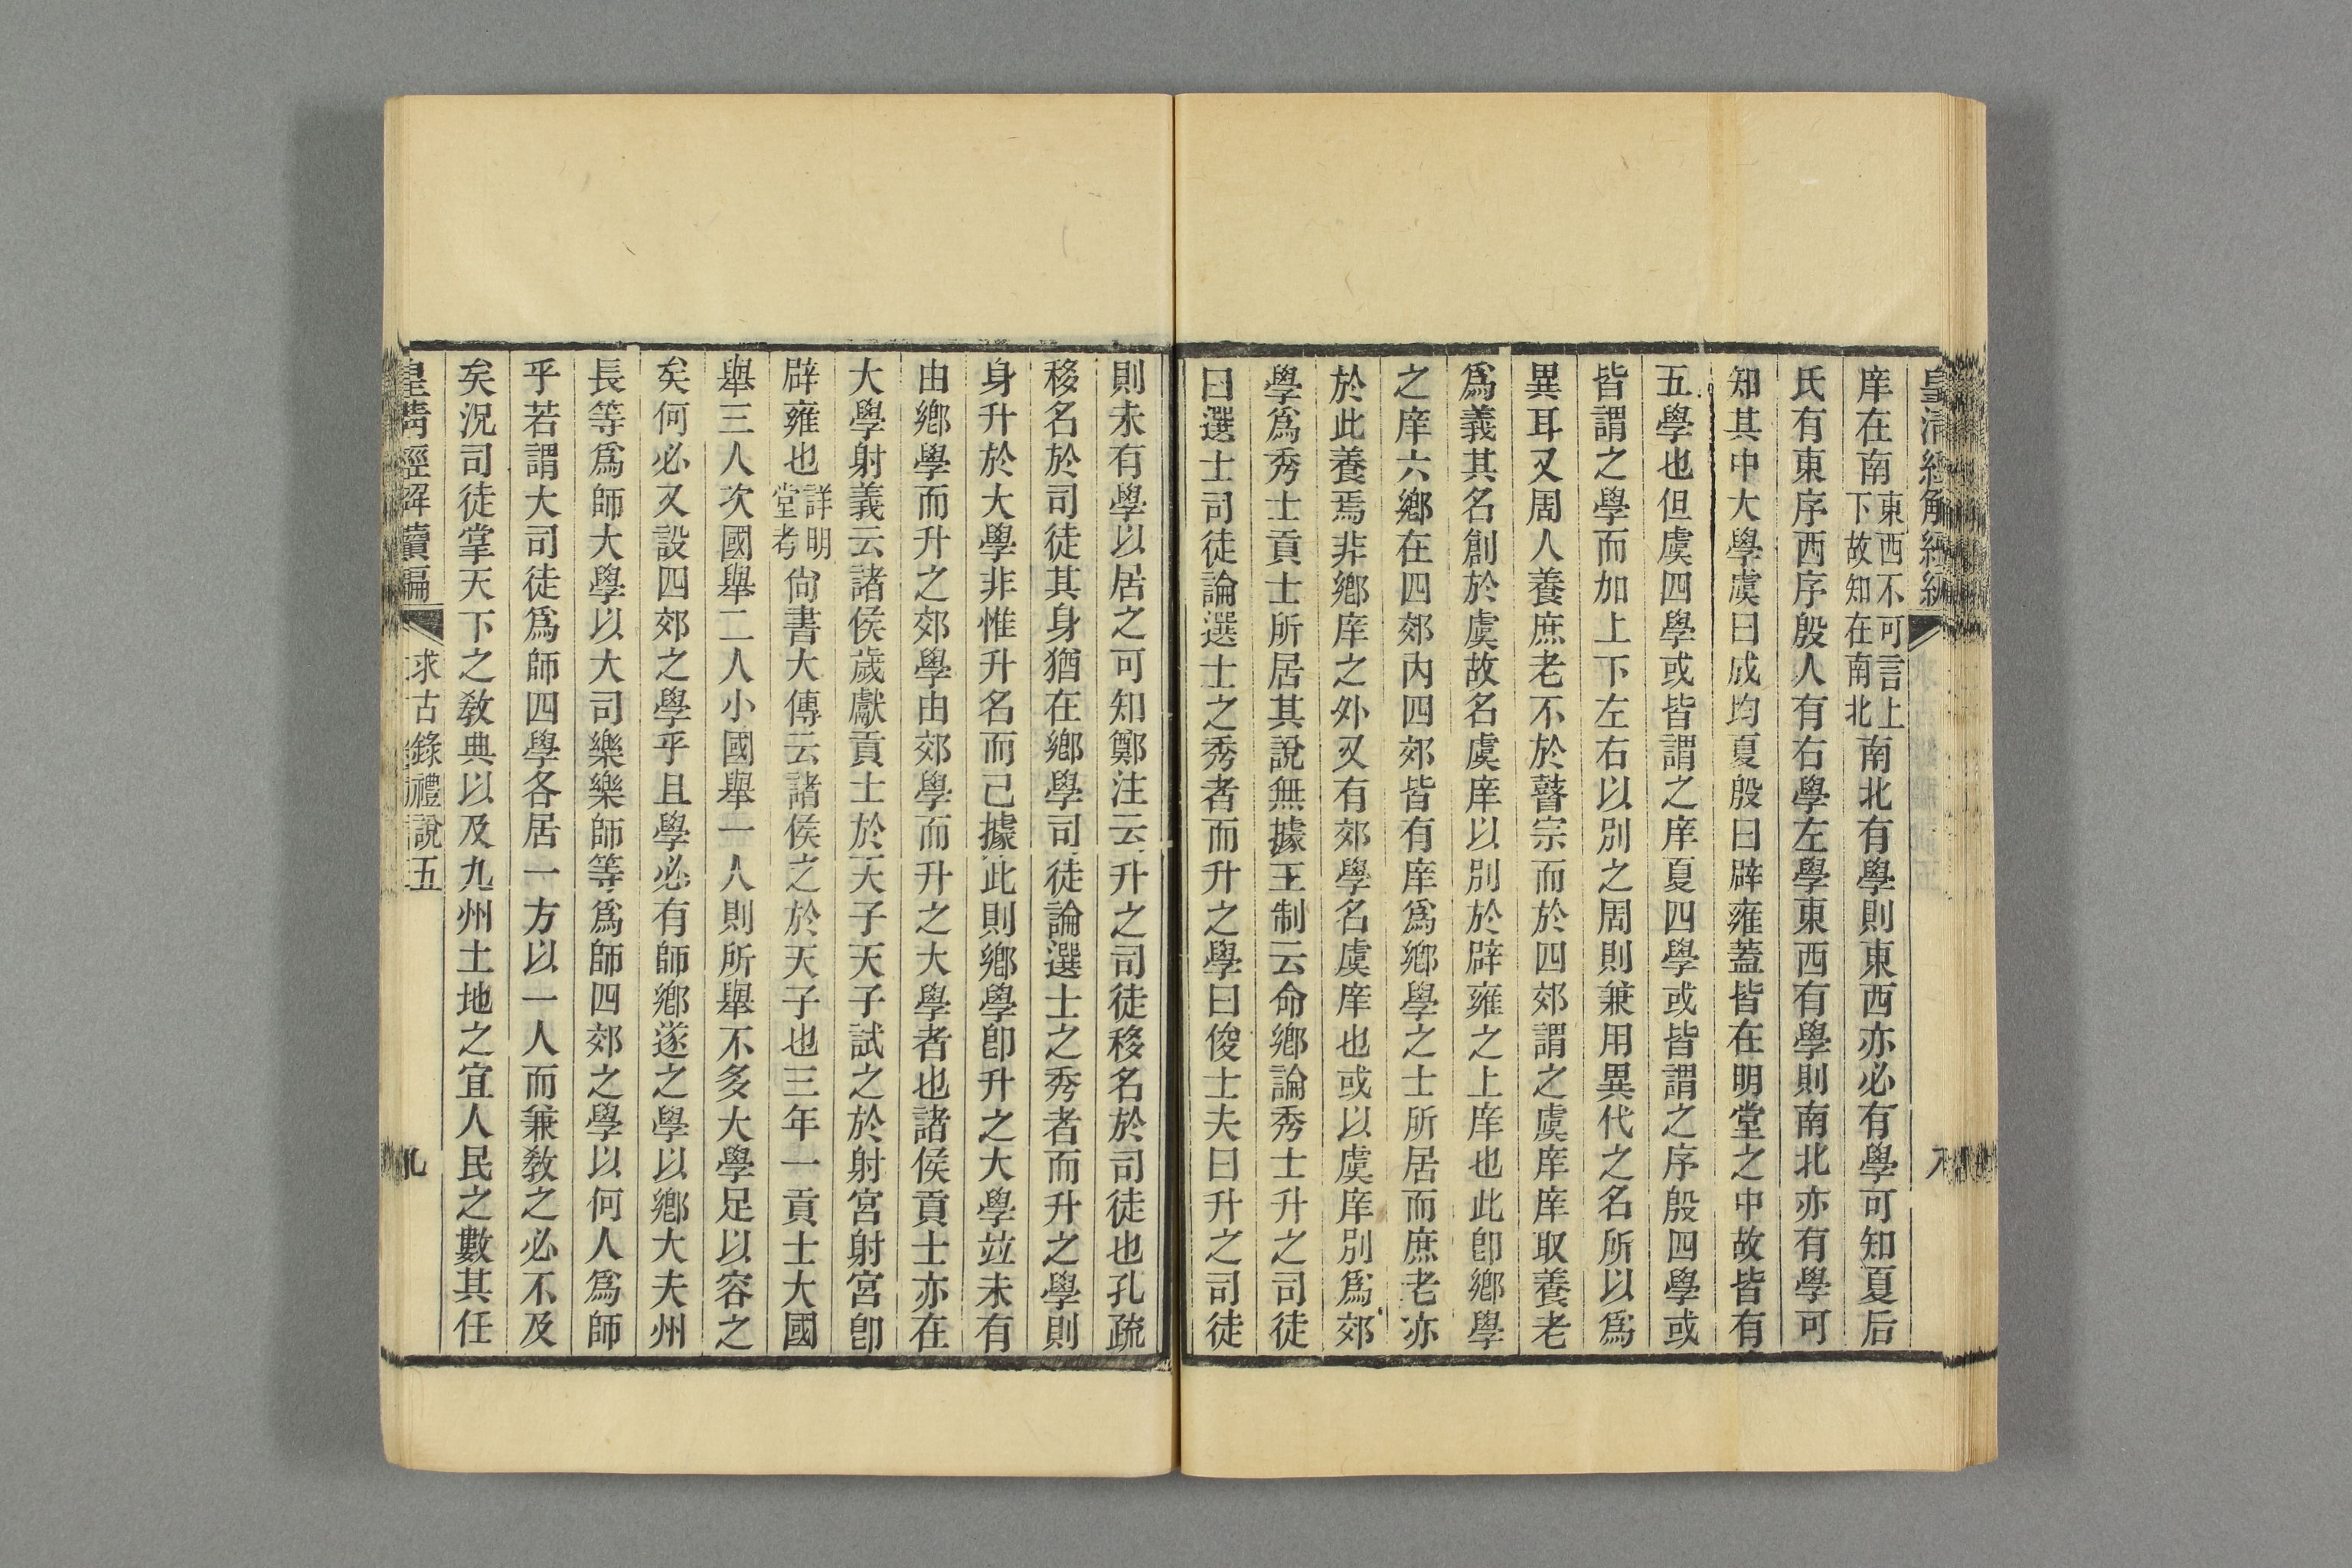 庠在南東西不可言上下故知在南北南北有學則東西亦必有學可知夏后
氏有東序西序殷人有右學左學東西有學則南北亦有學可
知其中大學虞曰成均夏殷曰辟雍蓋皆在明堂之中故皆有
五學也但虞四學或皆謂之庠夏四學或皆謂之序殷四學或
皆謂之學而加上下左右以別之周則兼用異代之名所以爲
異耳又周人養庶老不於瞽宗而於四郊謂之虞庠庠取養老
爲義其名創於虞故名虞庠以別於辟雍之上庠也此卽鄉學
之庠六鄉在四郊內四郊皆有庠爲鄉學之士所居而庶老亦
於此養焉非鄉庠之外又有郊學名虞庠也或以虞庠別爲郊
學爲秀士貢士所居其說無據王制云命鄉論秀士升之司徒
曰選士司徒論選士之秀者而升之學曰俊士夫曰升之司徒
則未有學以居之可知鄭注云升之司徒移名於司徒也孔疏
移名於司徒其身猶在鄉學司徒論選士之秀者而升之學則
身升於大學非惟升名而已據此則鄉學卽升之大學竝未有
由鄉學而升之郊學由郊學而升之大學者也諸侯貢士亦在
大學射義云諸侯歲獻貢士於天子天子試之於射宮射宮卽
辟雍也詳明堂考尚書大傳云諸侯之於天子也三年一貢士大國
舉三人次國舉二人小國舉一人則所舉不多大學足以容之
矣何必又設四郊之學乎且學必有師鄉遂之學以鄉大夫州
長等爲師大學以大司樂樂師等爲師四郊之學以何人爲師
乎若謂大司徒爲師四學各居一方以一人而兼敎之必不及
矣況司徒掌天下之敎典以及九州土地之宜人民之數其任
皇淸經解續編 求古錄禮說五 九